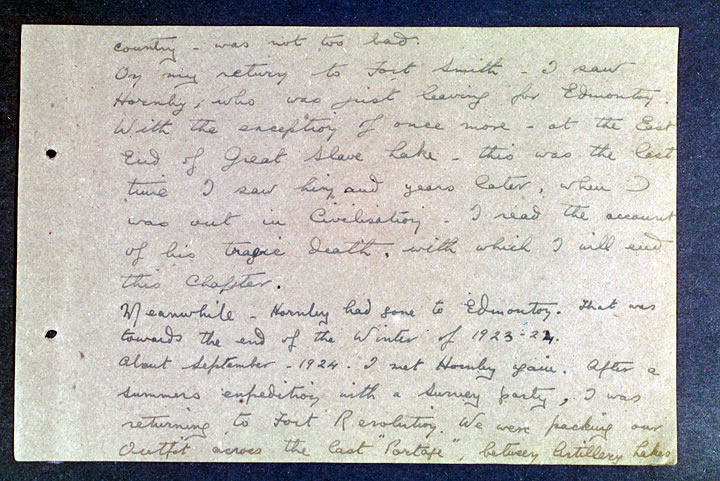 country - was not too bad.
On my return to Fort Smith - I saw
Hornby, who was just leaving for Edmonton.
With the exception of once more - at the East
End of Great Slave Lake - this was the last
time I saw him, and years later, when I
was out in Civilisation - I read the account
of his tragic death, with which I will end
this Chapter.
Meanwhile - Hornby had gone to Edmonton. That was
towards the end of the Winter of 1923-24.
About September - 1924. I met Hornby again. After a
summers expedition with a survey party, I was
returning to Fort Resolution. We were packing our
Outfit across the last "Portage", between Artillery Lakes